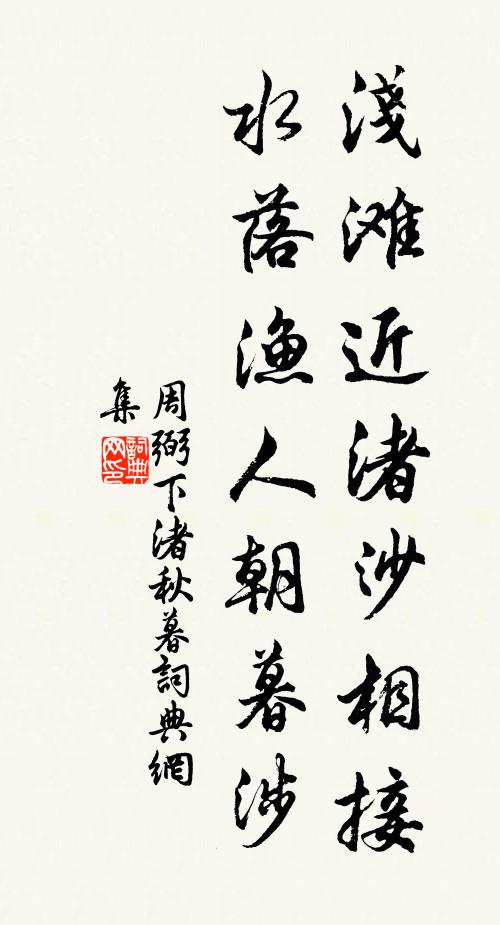 淺滩近渚沙相接
水落漁人朝暮涉
周弼下渚秋暮詞典網
集
詞典網印